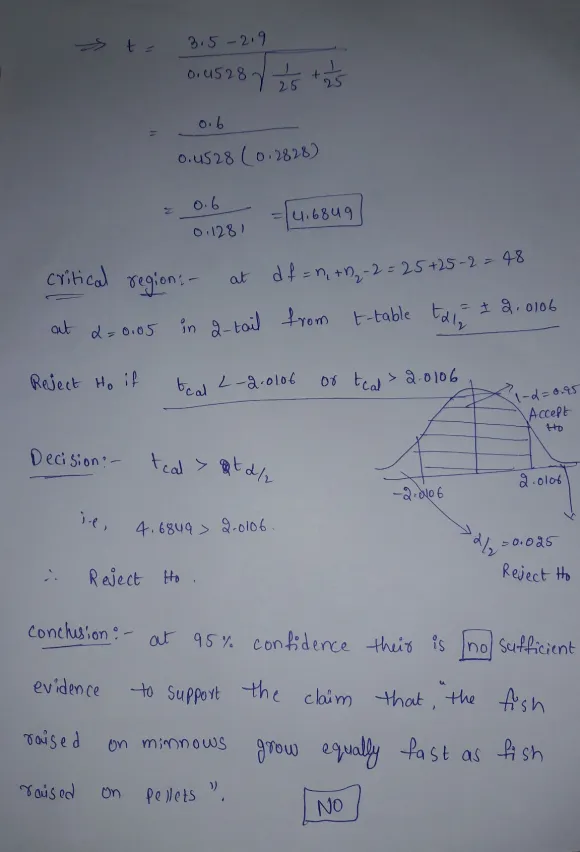 ⇒ t = 3.5 - 2.9 / 0.4528 √ 1/25 + 1/25
= 0.6 / 0.4528 (0.2828)
= 0.6 / 0.1281 = 4.6849
Critical region:- at df = n₁ + n₂ - 2 = 25 + 25 - 2 = 48
at α = 0.05 in 2-tail from t-table tα/₂ = ± 2.0106
Reject H₀ if tcal < -2.0106 or tcal > 2.0106
1-α = 0.95
Accept
H₀
-2.0106
2.0106
α/₂ = 0.025
Reject H₀
Decision:- tcal > tα/₂
i.e, 4.6849 > 2.0106.
∴ Reject H₀.
Conclusion:- at 95% confidence their is no sufficient
evidence to support the claim that, "the fish
raised on minnows grow equally fast as fish
raised on pellets".
NO